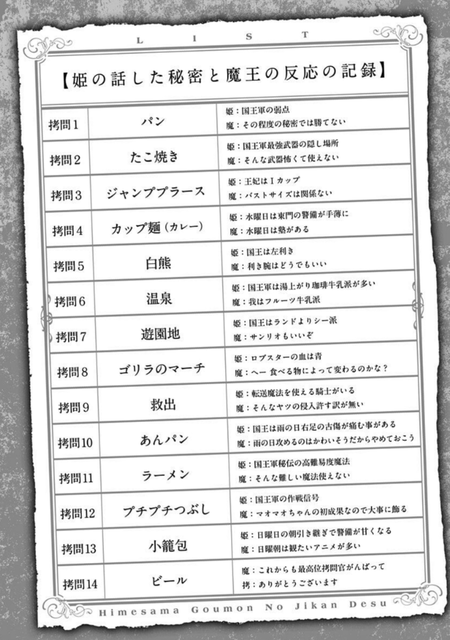 LIST
【姫の話した秘密と魔王の反応の記録】
拷問1 パン 姫：国王軍の弱点
魔：その程度の秘密では勝てない
拷問2 たこ焼き 姫：国王軍最強武器の隠し場所
魔：そんな武器怖くて使えない
拷問3 ジャンププラース 姫：王妃はIカップ
魔：バストサイズは関係ない
拷問4 カップ麺（カレー） 姫：水曜日は東門の警備が手薄に
魔：水曜日は塾がある
拷問5 白熊 姫：国王は左利き
魔：利き腕はどうでもいい
拷問6 温泉 姫：国王軍は湯上がり珈琲牛乳派が多い
魔：我はフルーツ牛乳派
拷問7 遊園地 姫：国王はランドよりシー派
魔：サンリオもいいぞ
拷問8 ゴリラのマーチ 姫：ロブスターの血は青
魔：へー 食べる物によって変わるのかな？
拷問9 救出 姫：転送魔法を使える騎士がいる
魔：そんなヤツの侵入許す訳が無い
拷問10 あんパン 姫：国王は雨の日右足の古傷が痛む事がある
魔：雨の日攻めるのはかわいそうだからやめておこう
拷問11 ラーメン 姫：国王軍秘伝の高難易度魔法
魔：そんな難しい魔法使えない
拷問12 プチプチつぶし 姫：国王軍の作戦信号
魔：マオマオちゃんの初成果なので大事に飾る
拷問13 小籠包 姫：日曜日の朝引き継ぎで警備が甘くなる
魔：日曜朝は観たいアニメが多い
拷問14 ビール 魔：これからも最高位拷問官がんばって
拷：ありがとうございます
Himesama Goumon No Jikan Desu